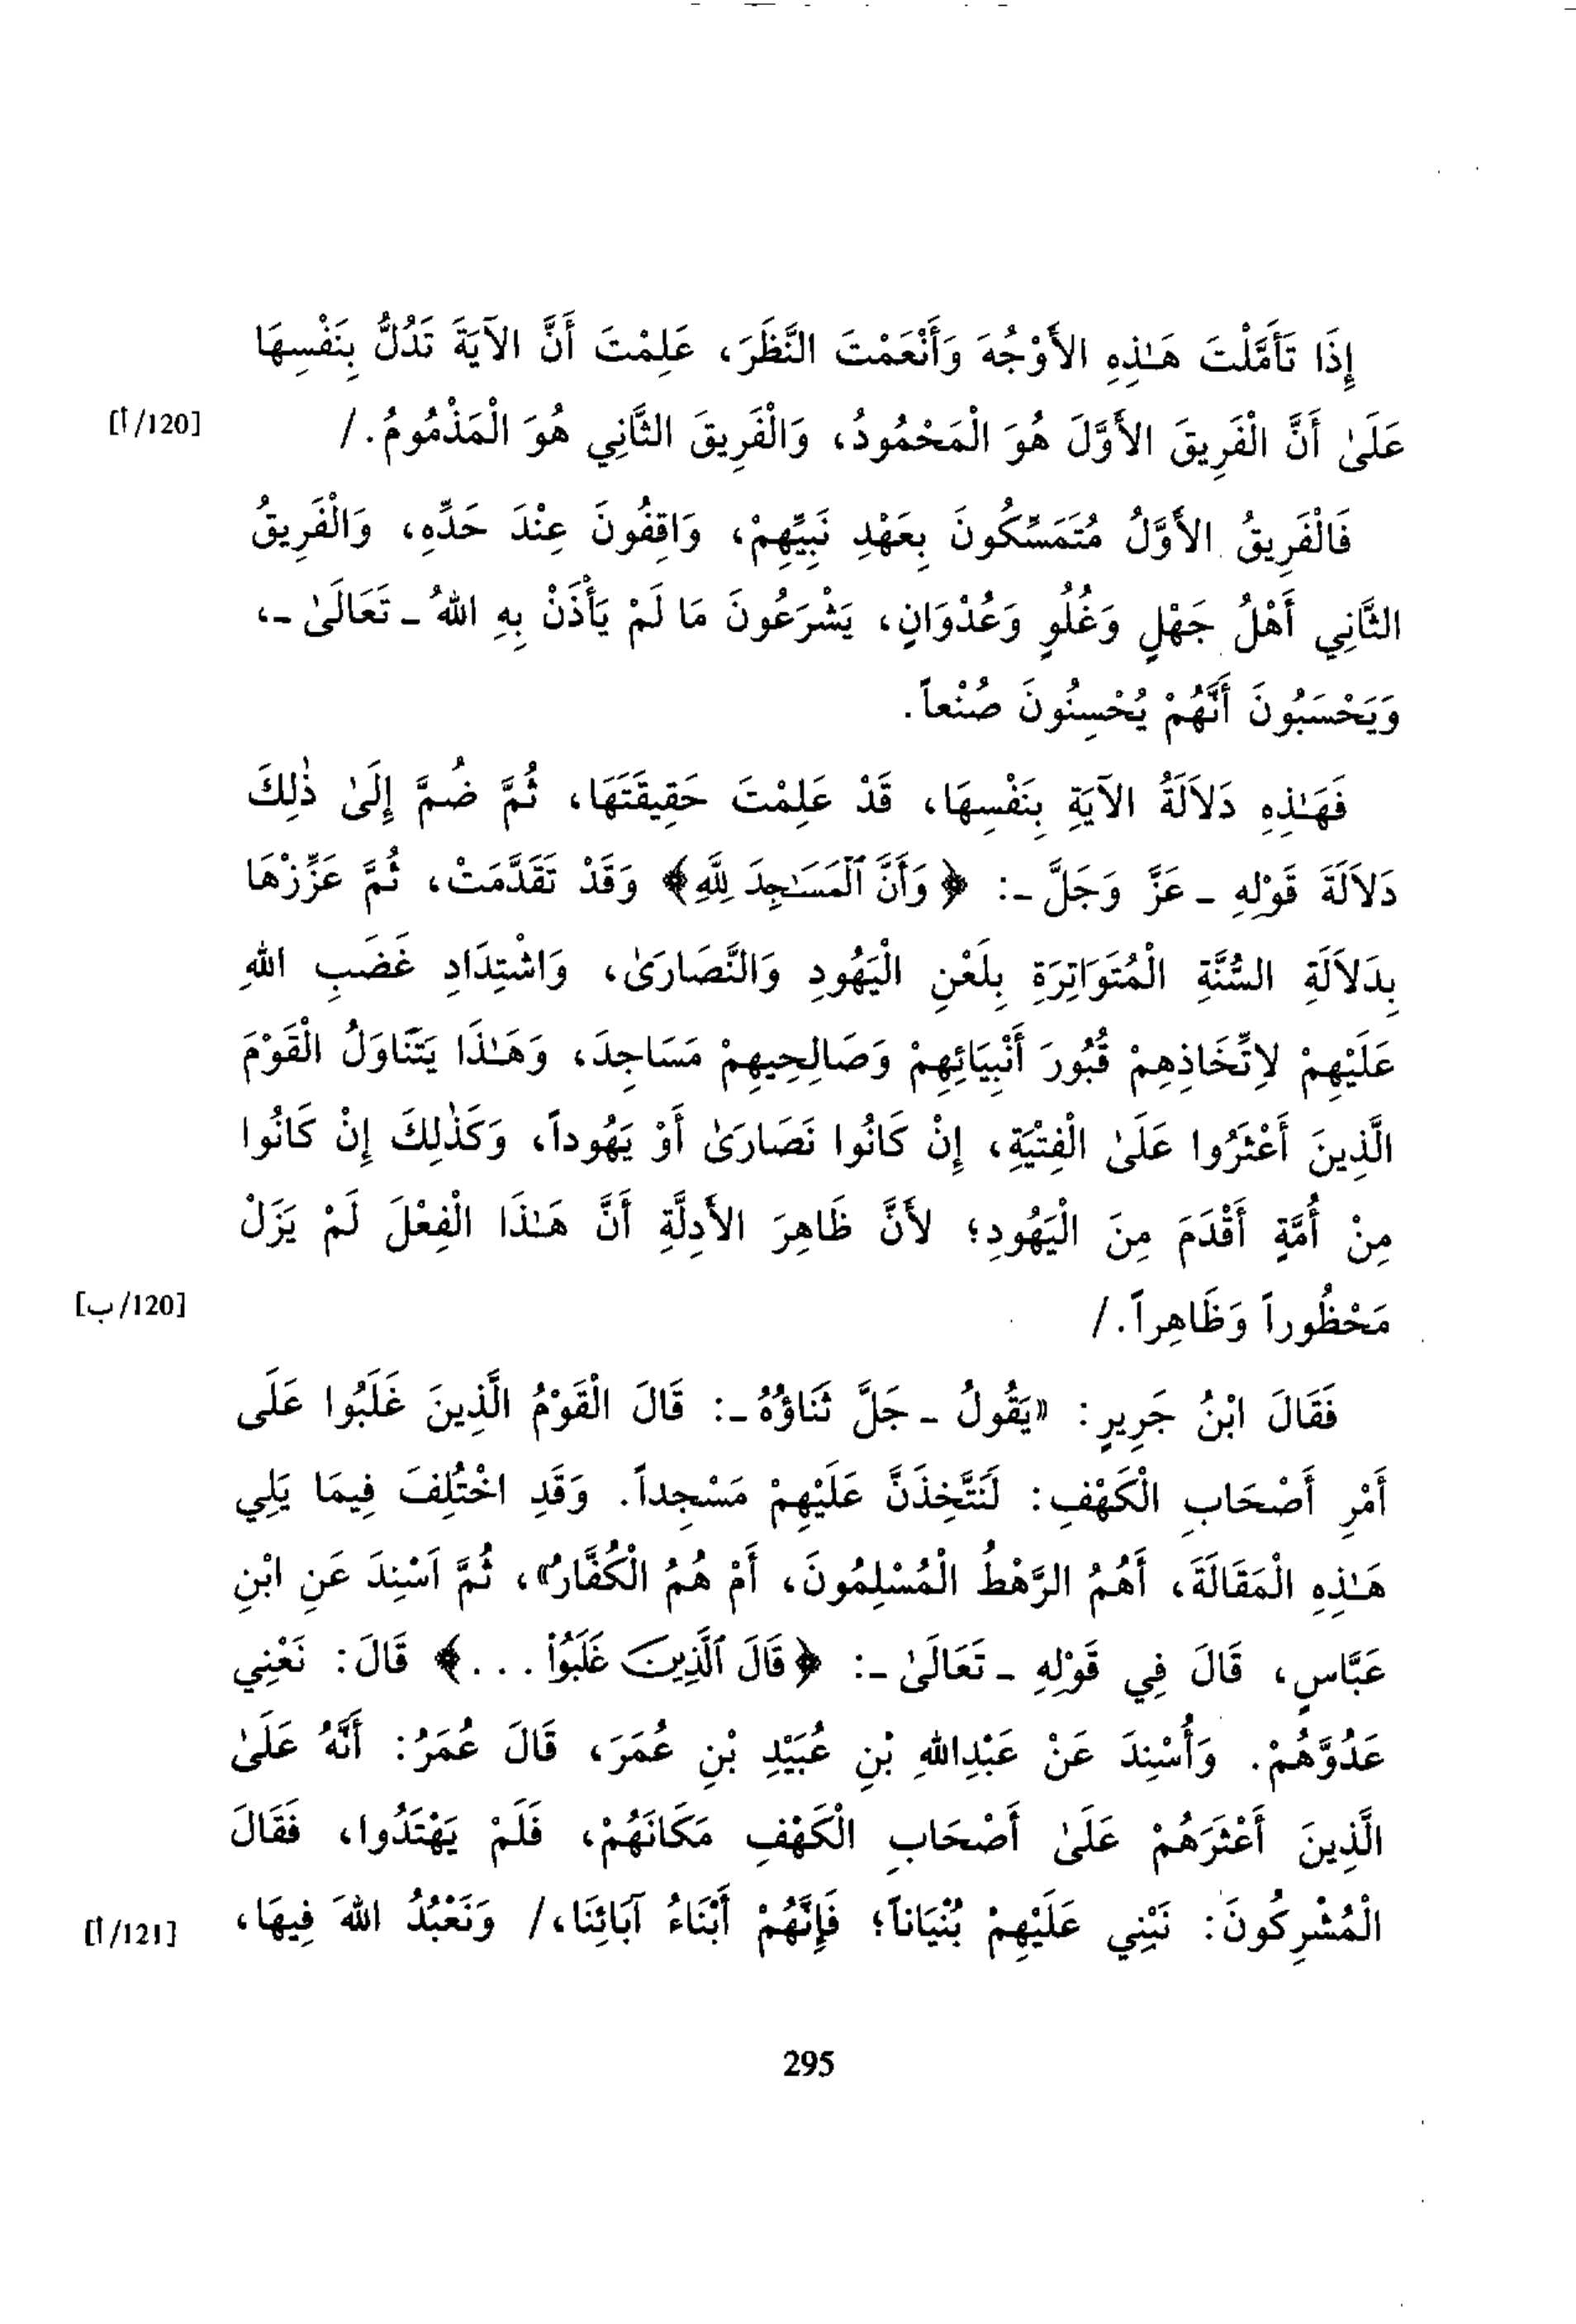 إِذَا تَأَمَّلْتَ هَـٰذِهِ الأَوْجُهَ وَأَنْعَمْتَ النَّظَرَ، عَلِمْتَ أَنَّ الآيَةَ تَدُلُّ بِنَفْسِهَا
عَلَىٰ أَنَّ الْفَرِيقَ الأَوَّلَ هُوَ الْمَحْمُودُ، وَالْفَرِيقَ الثَّانِي هُوَ الْمَذْمُومُ. / [120/أ]
فَالْفَرِيقُ الأَوَّلُ مُتَمَسِّكُونَ بِعَهْدِ نَبِيِّهِمْ، وَاقِفُونَ عِنْدَ حَدِّهِ، وَالْفَرِيقُ
الثَّانِي أَهْلُ جَهْلٍ وَغُلُوٍ وَعُدْوَانٍ، يَشْرَعُونَ مَا لَمْ يَأْذَنْ بِهِ اللهُ ـ تَعَالَىٰ ـ،
وَيَحْسَبُونَ أَنَّهُمْ يُحْسِنُونَ صُنْعاً.
فَهَـٰذِهِ دَلاَلَةُ الآيَةِ بِنَفْسِهَا، قَدْ عَلِمْتَ حَقِيقَتَهَا، ثُمَّ ضُمَّ إِلَىٰ ذٰلِكَ
دَلاَلَةَ قَوْلِهِ ـ عَزَّ وَجَلَّ ـ: ﴿وَأَنَّ ٱلْمَسَـٰجِدَ لِلَّهِ﴾ وَقَدْ تَقَدَّمَتْ، ثُمَّ عَزِّزْهَا
بِدَلاَلَةِ السُّنَّةِ الْمُتَوَاتِرَةِ بِلَعْنِ الْيَهُودِ وَالنَّصَارَىٰ، وَاشْتِدَادِ غَضَبِ اللهِ
عَلَيْهِمْ لاِتِّخَاذِهِمْ قُبُورَ أَنْبِيَائِهِمْ وَصَالِحِيهِمْ مَسَاجِدَ، وَهَـٰذَا يَتَنَاوَلُ الْقَوْمَ
الَّذِينَ أَعْثَرُوا عَلَىٰ الْفِتْيَةِ، إِنْ كَانُوا نَصَارَىٰ أَوْ يَهُوداً، وَكَذٰلِكَ إِنْ كَانُوا
مِنْ أُمَّةٍ أَقْدَمَ مِنَ الْيَهُودِ؛ لأَنَّ ظَاهِرَ الأَدِلَّةِ أَنَّ هَـٰذَا الْفِعْلَ لَمْ يَزَلْ
مَحْظُوراً وَظَاهِراً. / [120/ب]
فَقَالَ ابْنُ جَرِيرٍ: «يَقُولُ ـ جَلَّ ثَنَاؤُهُ ـ: قَالَ الْقَوْمُ الَّذِينَ غَلَبُوا عَلَى
أَمْرِ أَصْحَابِ الْكَهْفِ: لَنَتَّخِذَنَّ عَلَيْهِمْ مَسْجِداً. وَقَدِ اخْتُلِفَ فِيمَا يَلِي
هَـٰذِهِ الْمَقَالَةَ، أَهُمُ الرَّهْطُ الْمُسْلِمُونَ، أَمْ هُمُ الْكُفَّارُ»، ثُمَّ اَسْنِدَ عَنِ ابْنِ
عَبَّاسٍ، قَالَ فِي قَوْلِهِ ـ تَعَالَىٰ ـ: ﴿قَالَ ٱلَّذِينَ غَلَبُوٓاْ . . .﴾ قَالَ: نَعْنِي
عَدُوَّهُمْ. وَأُسْنِدَ عَنْ عَبْدِاللهِ بْنِ عُبَيْدِ بْنِ عُمَرَ، قَالَ عُمَرُ: أَنَّهُ عَلَىٰ
الَّذِينَ أَعْثَرَهُمْ عَلَىٰ أَصْحَابِ الْكَهْفِ مَكَانَهُمْ، فَلَمْ يَهْتَدُوا، فَقَالَ
الْمُشْرِكُونَ: نَبْنِي عَلَيْهِمْ بُنْيَاناً؛ فَإِنَّهُمْ أَبْنَاءُ آبَائِنَا،/ وَنَعْبُدُ اللهَ فِيهَا، [121/أ]
295